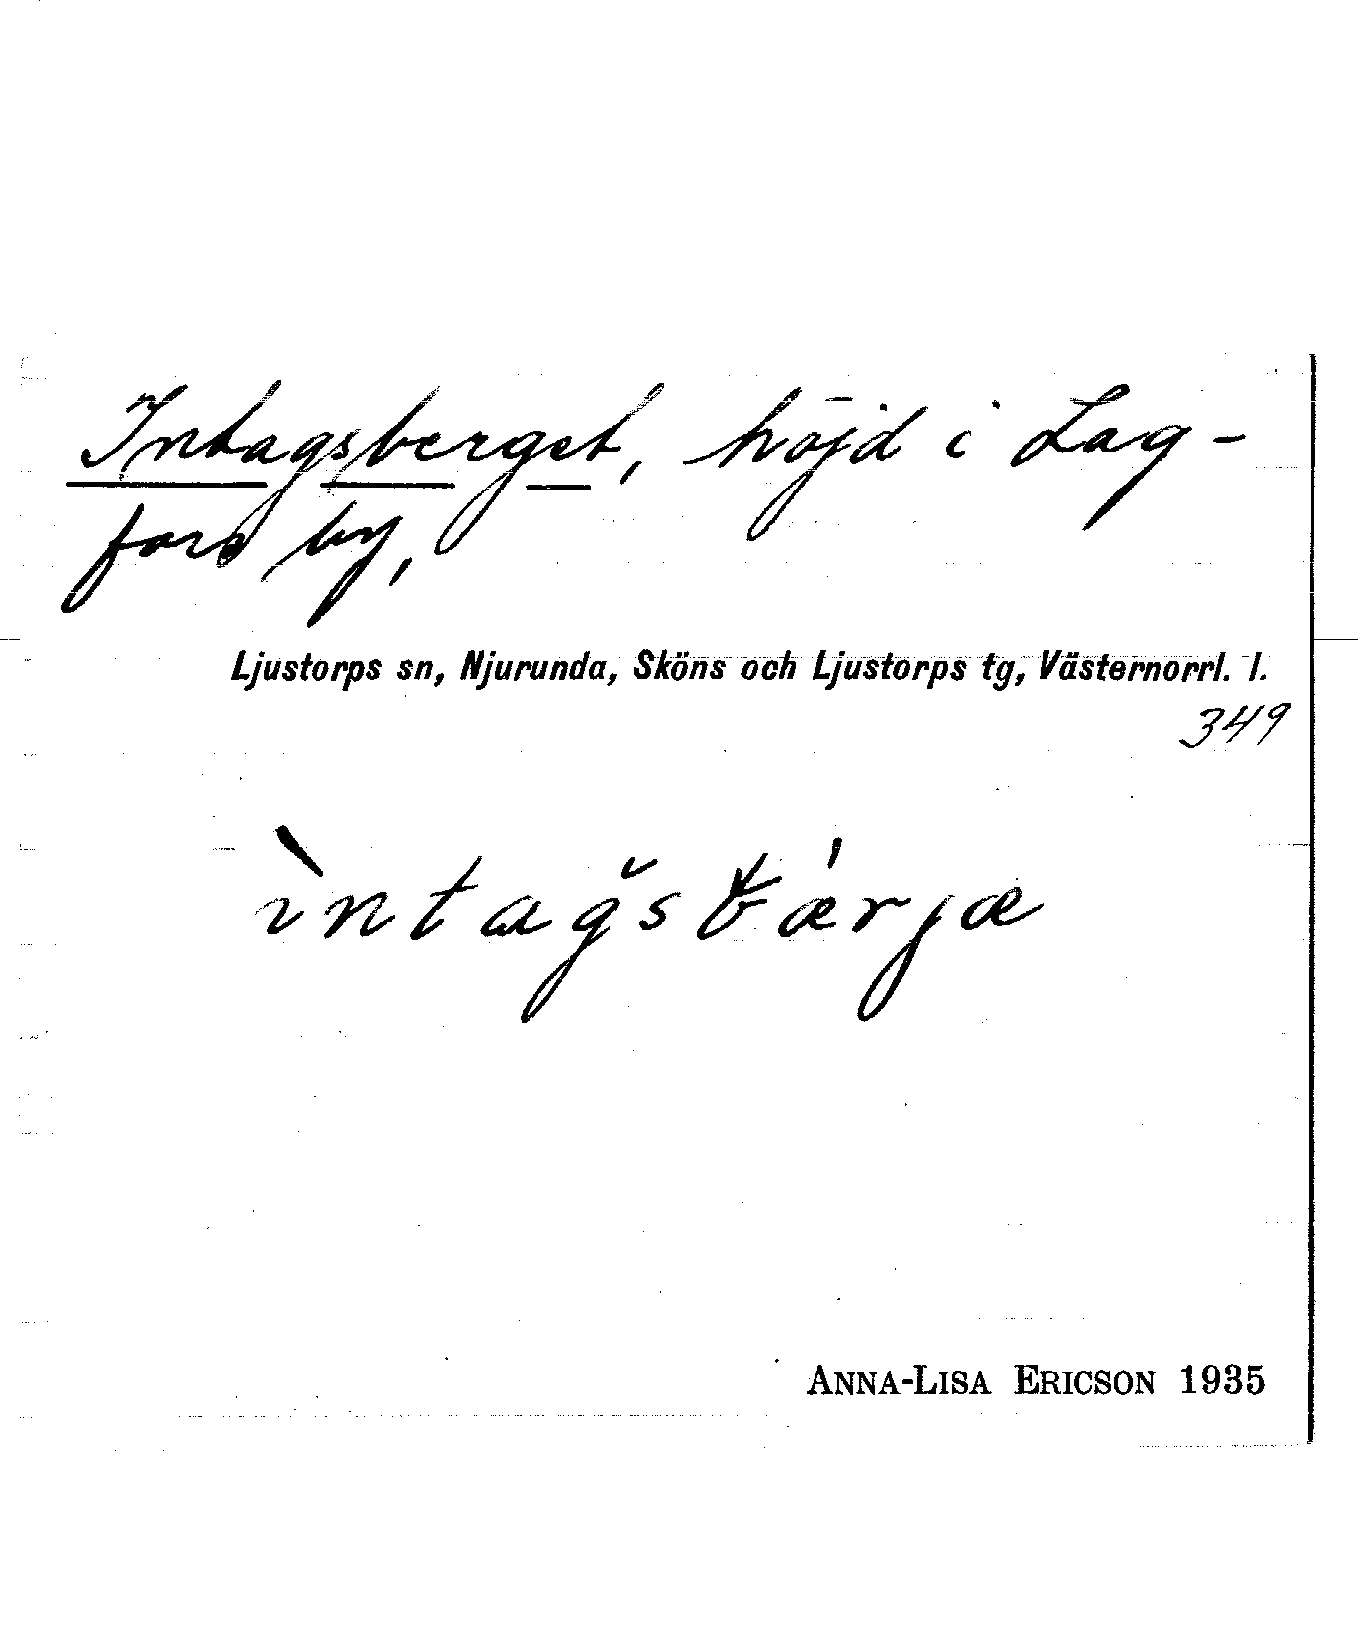 Intagsberget, höjd i Lag-
fors by,
Ljustorps sn, Njurunda, Sköns och Ljustorps tg, Västernorrl. l.
349
ìntaǧsbǽrjæ
ANNA-LISA ERICSON 1935